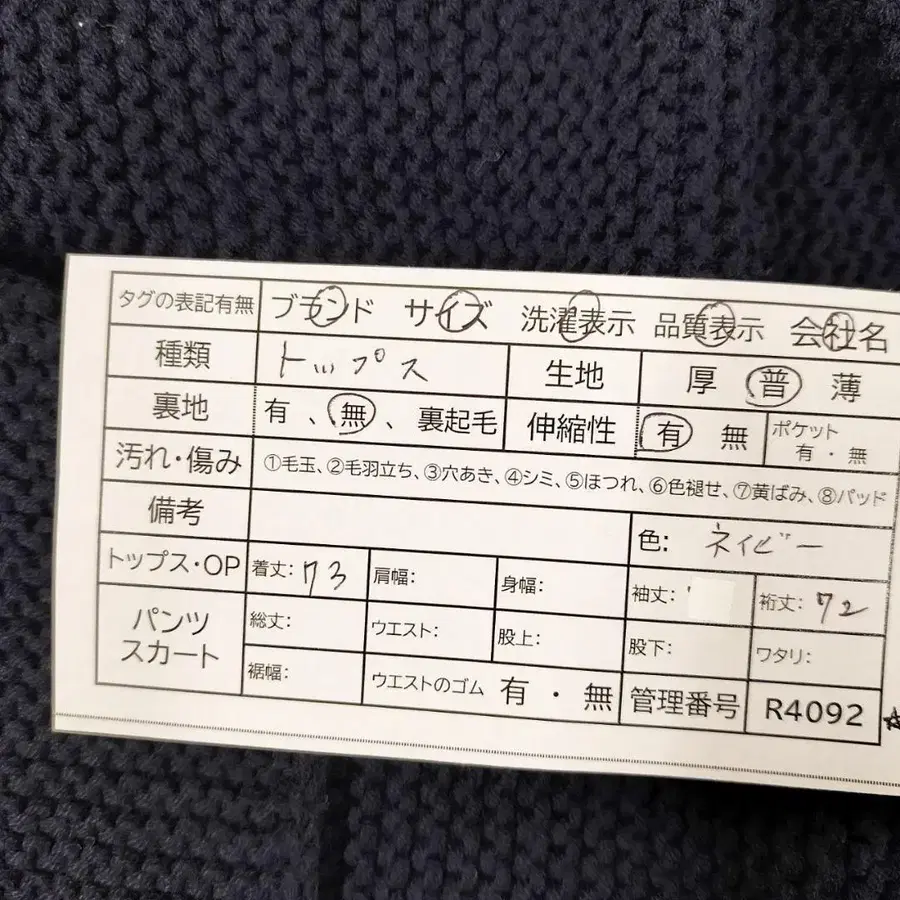 タグの表記有無 ブランド サイズ 洗濯表示 品質表示 会社名
種類 トップス 生地 厚 普 薄
裏地 有、無、裏起毛 伸縮性 有 無 ポケット 有・無
汚れ・傷み ①毛玉、②毛羽立ち、③穴あき、④シミ、⑤ほつれ、⑥色褪せ、⑦黄ばみ、⑧パッド
備考 色: ネイビー
トップス・OP 着丈: 73 肩幅: 身幅: 袖丈: 裄丈: 72
パンツ スカート 総丈: ウエスト: 股上: 股下: ワタリ:
裾幅: ウエストのゴム 有・無 管理番号 R4092